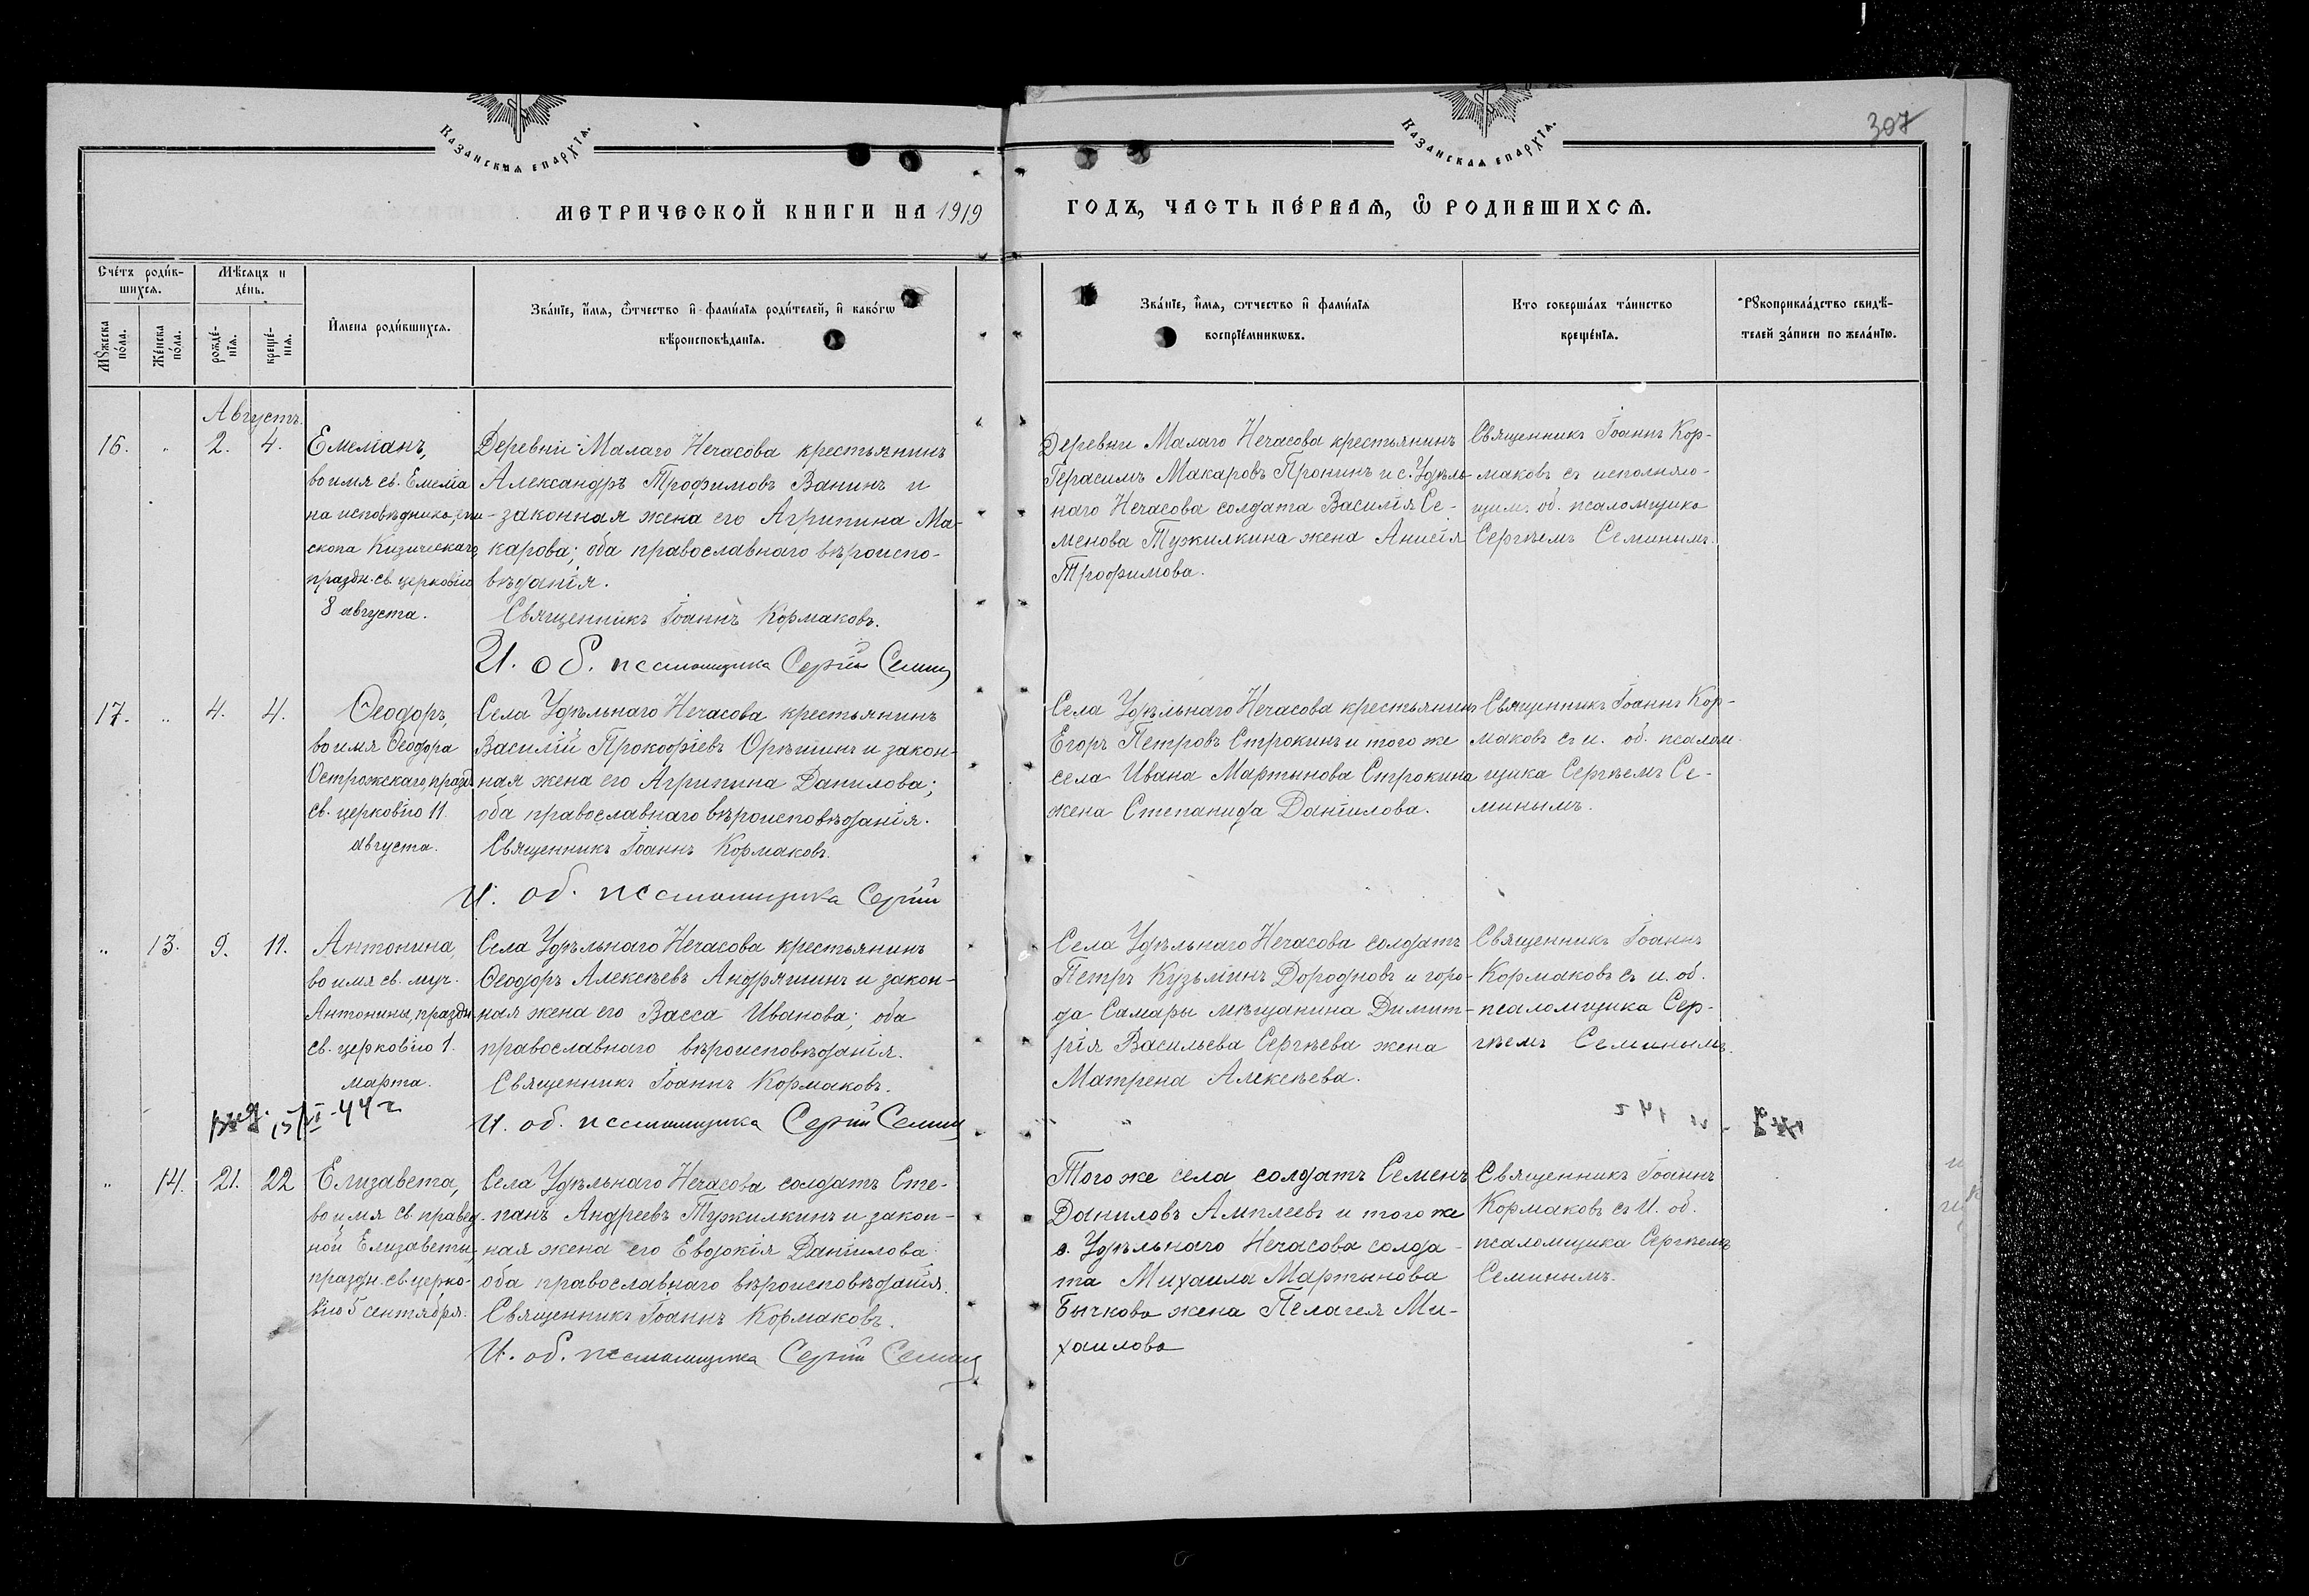 307
Казанская епархїя.
Казанская епархїя.
МЕТРИЧЕСКОЙ КНИГИ НА 1919
ГОДЪ, ЧАСТЬ ПЕ́РВАЯ, Ѡ РОДИВШИХСЯ.
Сче́тъ роди́в-
шихся.
Мѣсяцъ и
де́нь.
Мꙋжеска
по́ла.
Же́нска
по́ла.
рожде́-
нїя.
креще́-
нїя.
И҆мена роди́вшихся.
Зва́нїе, и҆́мя, ѻ҆́тчество и҆ фами́лїя роди́телей, и҆ како́гѡ
вѣроисповѣданїя.
Зва́нїе, и҆́мя, ѻтчество и҆ фами́лїя
воспрїе́мникѡвъ.
Кто соверша́лъ та́инство
креще́нїя.
Рꙋкоприкла́дство свидѣ́-
телей за́писи по жела́нїю.
Августъ.
16. " 2. 4.
Емеліанъ,
во имя св. Емеліа
на исповѣдника, епи-
скопа Кизическаго
праздн. св. церковію
8 августа.
Деревни Малаго Нечасова крестьянинъ
Александръ Трофимовъ Ванинъ и
законная жена его Агрипина Ма-
карова; оба православнаго вѣроиспо-
вѣданія.
Священникъ Іоаннъ Кормаковъ.
И. об. псаломщика Сергій Семин
Деревни Малаго Нечасова крестьянинъ
Герасимъ Макаровъ Пронинъ и с. Удѣль-
наго Нечасова солдата Василія Се-
менова Тужилкина жена Анисія
Трофимова.
Священникъ Іоаннъ Кор-
маковъ съ исполняю-
щим. об. псаломщика
Сергѣемъ Семинымъ.
17. " 4. 4.
Ѳеодоръ,
во имя Ѳеодора
Острожскаго, празд
св. церковію 11
августа.
Села Удѣльнаго Нечасова крестьянинъ
Василій Прокофіевъ Орѣшинъ и закон-
ная жена его Агрипина Данилова;
оба православнаго вѣроисповѣданія.
Священникъ Іоаннъ Кормаковъ.
И. об. псаломщика Сергій
Села Удѣльнаго Нечасова крестьянинъ
Егоръ Петровъ Строкинъ и того же
села Ивана Мартынова Строкина
жена Степанида Даніилова.
Священникъ Іоаннъ Кор-
маковъ съ и. об. псалом-
щика Сергѣемъ Се-
минымъ.
" 13. 9. 11.
Антонина,
во имя св. муч.
Антонины, праздн
св. церковію 1.
марта.
Села Удѣльнаго Нечасова крестьянинъ
Ѳеодоръ Алексѣевъ Андряшинъ и закон-
ная жена его Васса Иванова; оба
православнаго вѣроисповѣданія.
Священникъ Іоаннъ Кормаковъ.
И. об. псаломщика Сергій Семин
15/VI-44 г
Села Удѣльнаго Нечасова солдатъ
Петръ Кузьминъ Дородновъ и горо-
да Самары мѣщанина Димит-
рія Васильева Сергѣева жена
Матрена Алексѣева.
Священникъ Іоаннъ
Кормаковъ съ и. об.
псаломщика Сер-
гѣемъ Семинымъ.
" 14. 21. 22
Елизавета,
во имя св. правед-
ной Елизаветы,
праздн. св. церко-
вію 5 сентября.
Села Удѣльнаго Нечасова солдатъ Сте-
панъ Андреевъ Тужилкинъ и закон-
ная жена его Евдокія Даніилова
оба православнаго вѣроисповѣданія.
Священникъ Іоаннъ Кормаковъ.
И. об. псаломщика Сергій Семин
Того же села солдатъ Семенъ
Даниловъ Амплеевъ и того же
с. Удѣльнаго Нечасова солда-
та Михаила Мартынова
Бычкова жена Пелагея Ми-
хаилова
Священникъ Іоаннъ
Кормаковъ съ И. об.
псаломщика Сергѣемъ
Семинымъ.